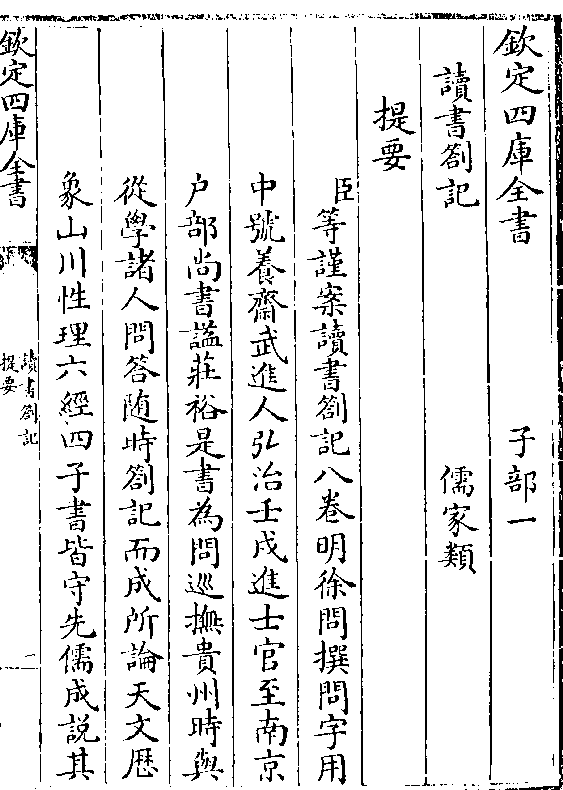 欽定四庫全書　子部一
讀書劄記　儒家類
提要
臣等謹案讀書劄記八卷明徐問撰問字用
中號養齋武進人弘治壬戌進士官至南京
戶部尚書諡莊裕是書為問巡撫貴州時與
從學諸人問答随時劄記而成所論天文歴
象山川性理六經四子書皆守先儒成説其
欽定四庫全書
讀書劄記
提要
一